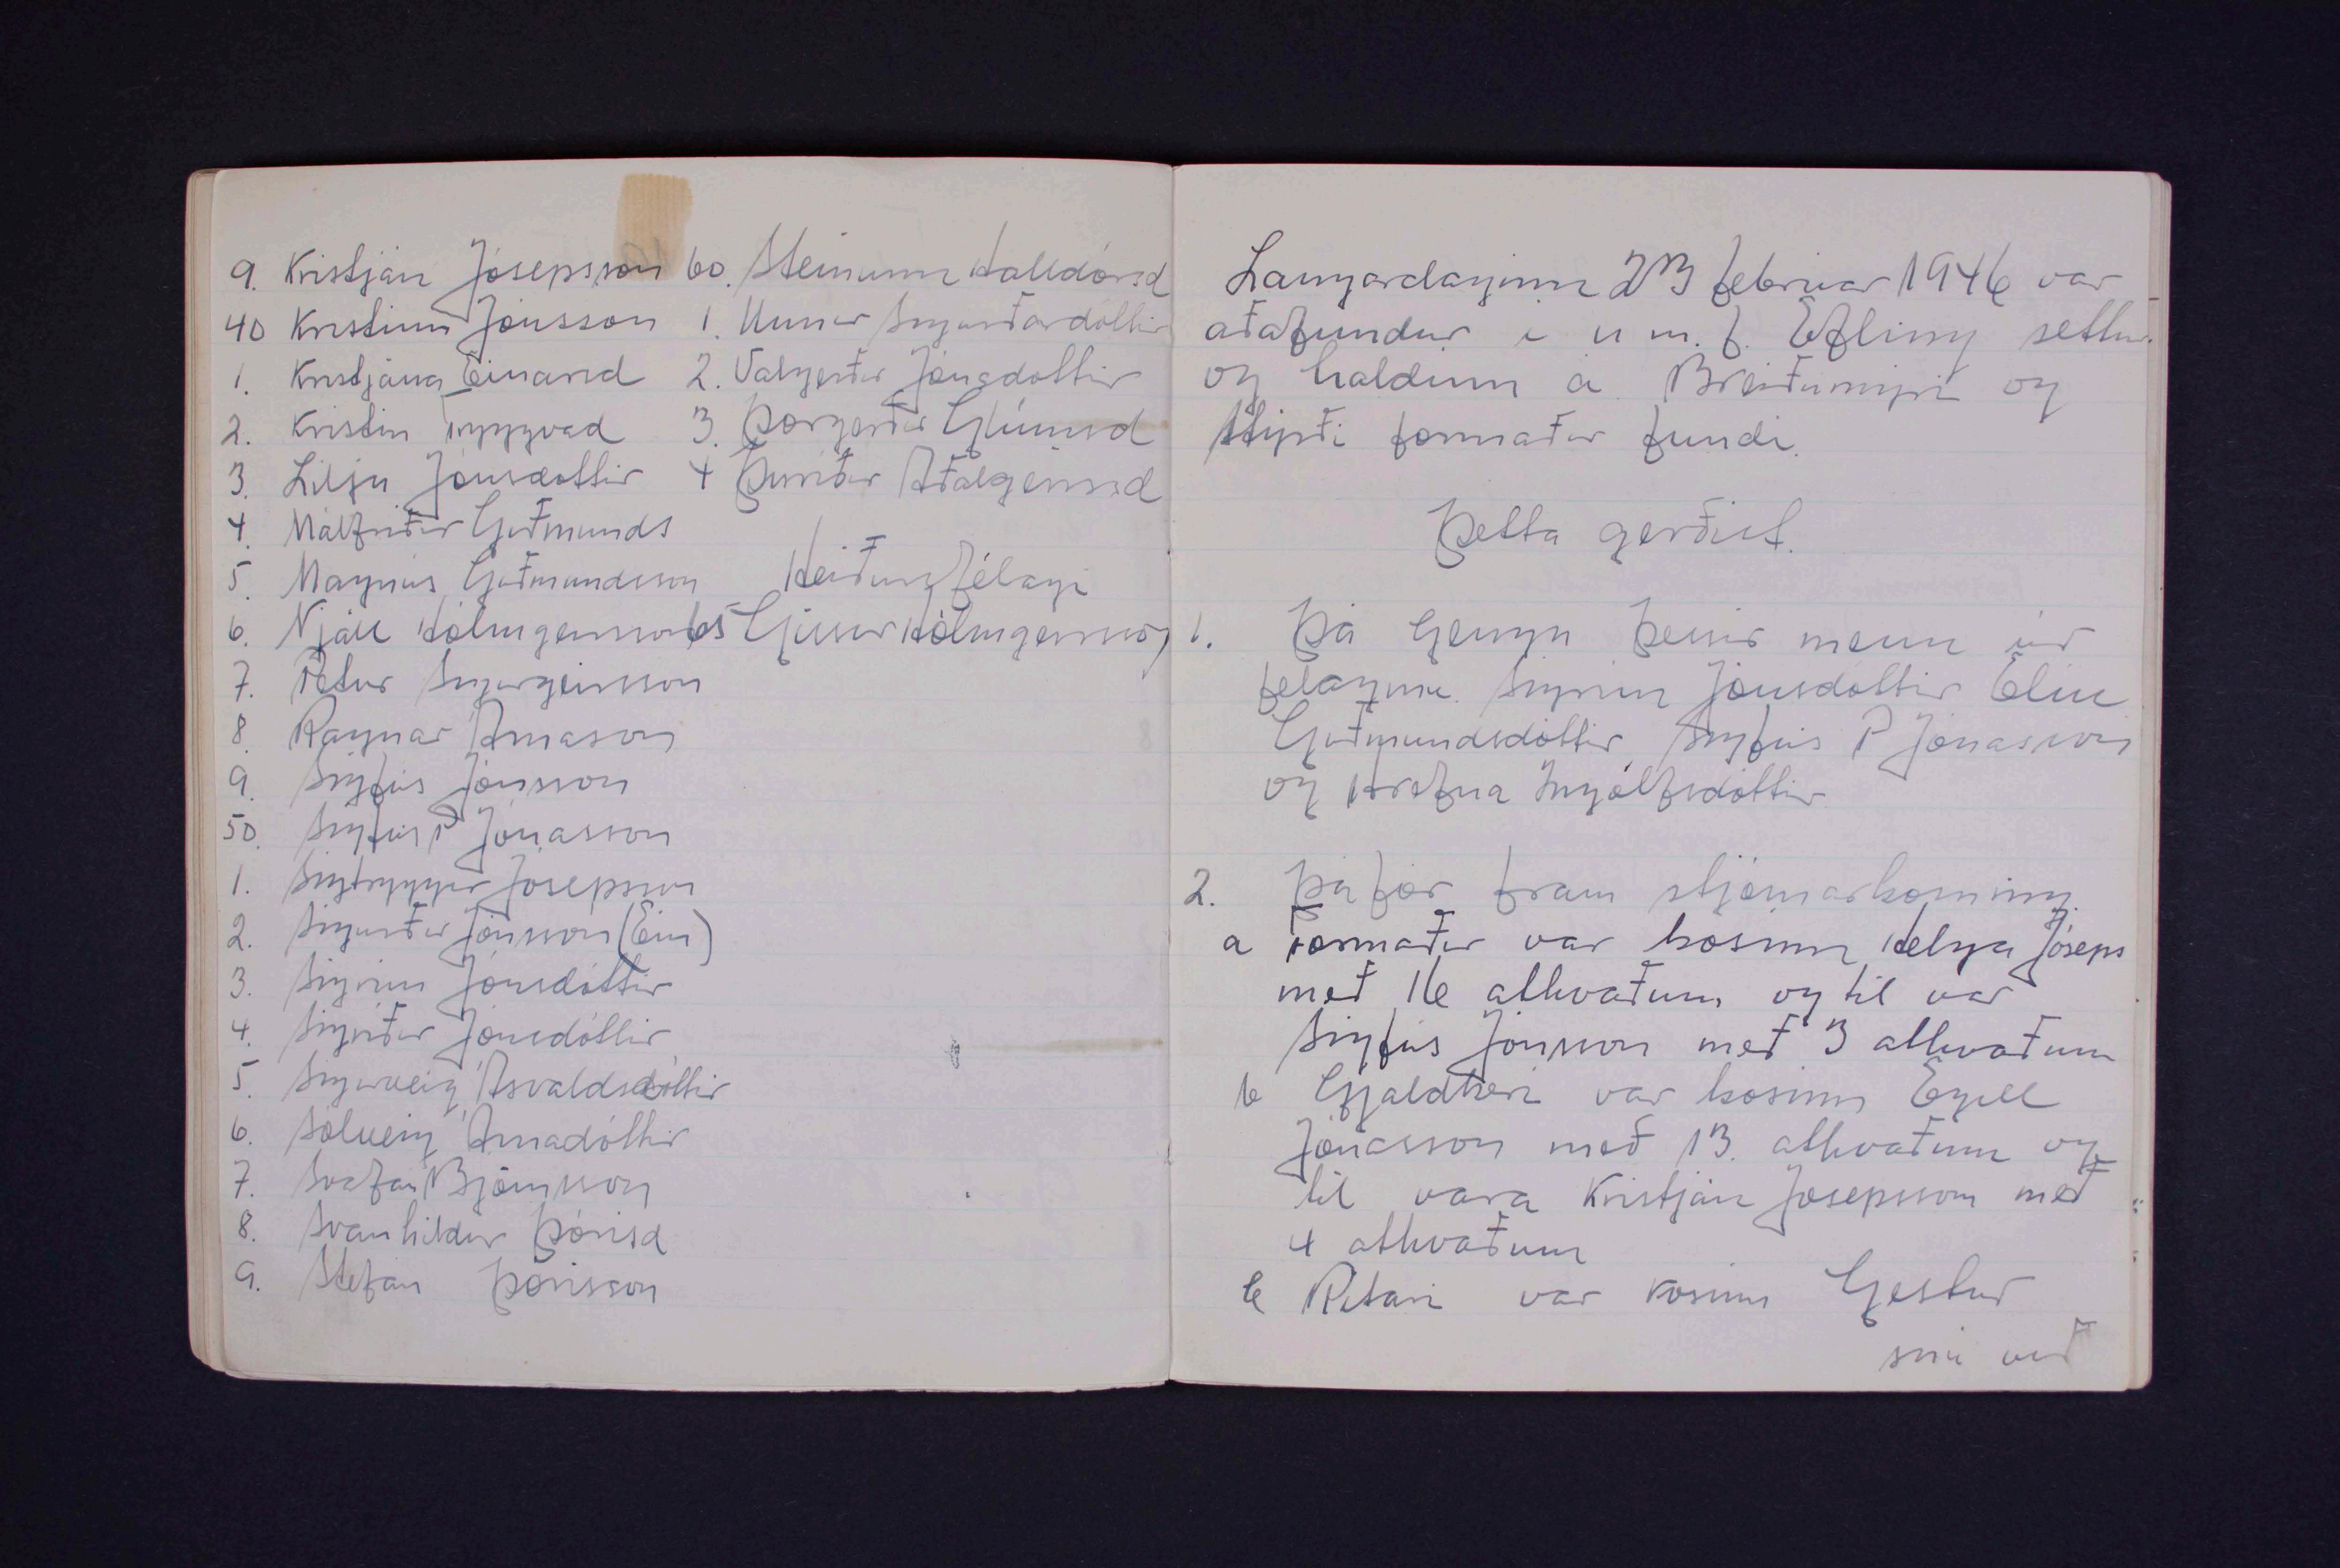 9. Kristján Jósepsson
40 Kristinn Jónsson
1. Kristjana Einarsd
2. Kristín Tryggvad
3. Lilja Jónsdóttir
4. Málfríður Guðmunds
5. Magnús Guðmundsson
6. Njáll Hólmgeirsson
7. Pétur Sigurgeirsson
8. Ragnar Árnason
9. Sigfús Jónsson
50. Sigfús P Jónasson
1. Sigtryggur Jósepsson
2. Sigurður Jónsson (Ein)
3. Sigrún Jónsdóttir
4. Sigríður Jónsdóttir
5. Sigurveig Ásvaldsdóttir
6. Sólveig Árnadóttir
7. Svafar Björnsson
8. Svanhildur Þórisd
9. Stefán Þórisson
60. Steinunn Halldórsd
1. Unnur Sigurðardóttir
2. Valgerður Jónsdóttir
3. Þorgerður Glúmsd
4 Þuríður Aðalgeirsd
Heiðursfélagi
65 Gissur Hólmgeirsson
Laugardaginn 23 febrúar 1946 var
aðafundur í u m. f. Efling settur
og haldinn á Breiðumýri og
stýrði formaður fundi.
Þetta gerðist.
1. Þá gengu þessir menn úr
félaginu Sigrún Jónsdóttir Elín
Guðmundsdóttir, Sigfús P Jónasson
og Hrefna Ingólfsdóttir
2. Þá fór fram stjórnarkosning.
a Formaður var kosinn Helga Jóseps
með 16 atkvæðum og til var
Sigfús Jónsson með 3 atkvæðum
b Gjaldkeri var kosinn Egill
Jónasson með 13. atkvæðum og
til vara Kristján Jósepsson með
4 atkvæðum
c Ritari var kosinn Gestur
snú við